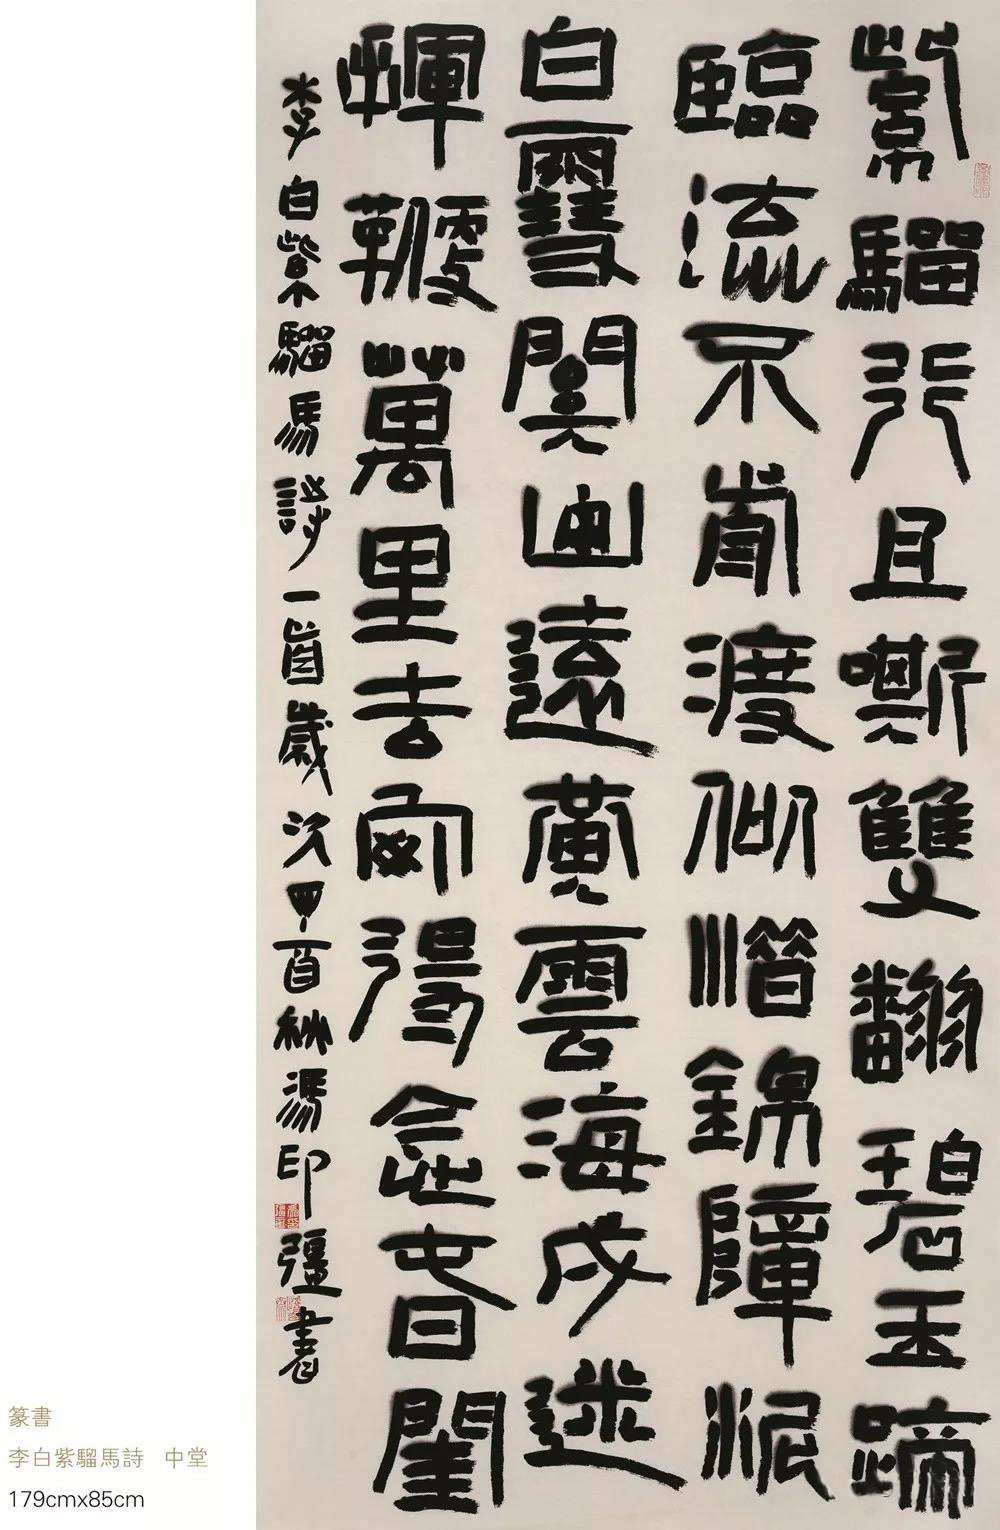 紫騮行且嘶雙翻碧玉蹄
臨流不肯渡似惜錦障泥
白雪關山遠黃雲海戍迷
揮鞭萬里去安得念春閨
李白紫騮馬詩一首歲次丁酉秋馮印彊書
篆書
李白紫騮馬詩 中堂
179cmx85cm